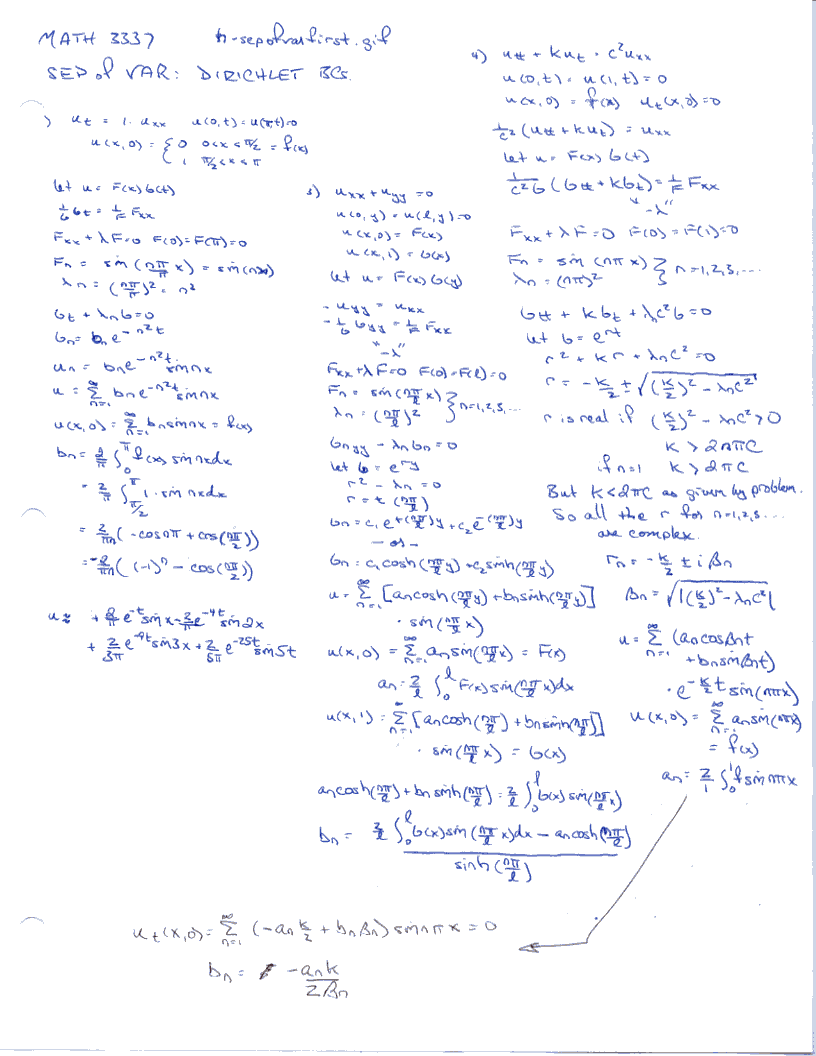 MATH 3337 h-sepofvarfirst.gif
SEP of VAR: DIRICHLET BCs.
1) u_t = 1. u_xx u(0,t) = u(π,t)=0
u(x,0) = { 0 0<x<π/2 = f(x)
1 π/2<x<π
let u = F(x)G(t)
1/G G_t = 1/F F_xx
F_xx + λF=0 F(0)=F(π)=0
F_n = sin(nπ/π x) = sin(nx)
λ_n = (nπ/π)^2 = n^2
G_t + λ_n G=0
G_n = b_n e^{-n^2t}
u_n = b_n e^{-n^2t} sin nx
u = Σ_{n=1}^∞ b_n e^{-n^2t} sin nx
u(x,0) = Σ_{n=1}^∞ b_n sin nx = f(x)
b_n = 2/π ∫_0^π f(x) sin nx dx
= 2/π ∫_{π/2}^π 1. sin nx dx
= 2/πn (-cos nπ + cos(nπ/2))
= -2/πn ((-1)^n - cos(nπ/2))
u ≈ + 2/π e^{-t} sin x - 2/π e^{-4t} sin 2x
+ 2/3π e^{-9t} sin 3x + 2/5π e^{-25t} sin 5t
3) u_xx + u_yy = 0
u(0,y) = u(l,y)=0
u(x,0) = F(x)
u(x,1) = G(x)
let u = F(x)G(y)
- u_yy = u_xx
- 1/G G_yy = 1/F F_xx
"-λ"
F_xx + λF=0 F(0)=F(l)=0
F_n = sin(nπ/l x) } n=1,2,3,...
λ_n = (nπ/l)^2
G_nyy - λ_n G_n = 0
let G = e^{ry}
r^2 - λ_n = 0
r = ± (nπ/l)
G_n = c_1 e^{+(nπ/l)y} + c_2 e^{-(nπ/l)y}
- or -
G_n = c_1 cosh(nπ/l y) + c_2 sinh(nπ/l y)
u = Σ_{n=1}^∞ [a_n cosh(nπ/l y) + b_n sinh(nπ/l y)]
· sin(nπ/l x)
u(x,0) = Σ_{n=1}^∞ a_n sin(nπ/l x) = F(x)
a_n = 2/l ∫_0^l F(x) sin(nπ/l x)dx
u(x,1) = Σ_{n=1}^∞ [a_n cosh(nπ/l) + b_n sinh(nπ/l)]
· sin(nπ/l x) = G(x)
a_n cosh(nπ/l) + b_n sinh(nπ/l) = 2/l ∫_0^l G(x) sin(nπ/l x)
b_n = 2/l ∫_0^l G(x) sin(nπ/l x)dx - a_n cosh(nπ/l)
sinh(nπ/l)
4) u_tt + k u_t = c^2 u_xx
u(0,t) = u(1,t) = 0
u(x,0) = f(x) u_t(x,0)=0
1/c^2 (u_tt + k u_t) = u_xx
let u = F(x) G(t)
1/c^2G (G_tt + k G_t) = 1/F F_xx
"-λ"
F_xx + λF=0 F(0)=F(1)=0
F_n = sin(nπx) } n=1,2,3,....
λ_n = (nπ)^2
G_tt + k G_t + λ_n c^2 G = 0
let G = e^{rt}
r^2 + k r + λ_n c^2 = 0
r = -k/2 ± √((k/2)^2 - λ_n c^2)
r is real if (k/2)^2 - λ_n c^2 > 0
k > 2nπc
if n=1 k > 2πc
But k<2πc as given by problem.
So all the r for n=1,2,3....
are complex.
r_n = -k/2 ± i β_n
β_n = √|(k/2)^2 - λ_n c^2|
u = Σ_{n=1}^∞ (a_n cos β_n t
+ b_n sin β_n t)
· e^{-k/2 t} sin(nπx)
u(x,0) = Σ_{n=1}^∞ a_n sin(nπx)
= f(x)
a_n = 2/1 ∫_0^1 f sin nπx
u_t(x,0) = Σ_{n=1}^∞ (-a_n k/2 + b_n β_n) sin nπx = 0
b_n = -a_n k
2β_n